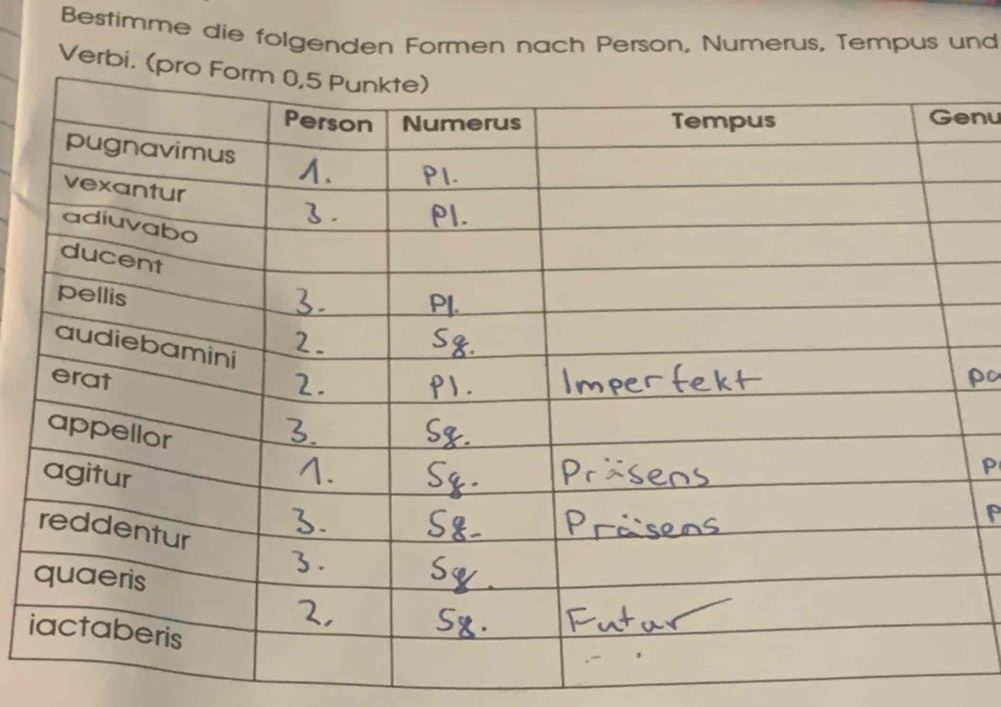 Bestimme die folgenden Formen nach Person, Numerus, Tempus und
Verbi. (pro Form 0,5 Punkte)
Person Numerus Tempus Genu
pugnavimus 1. Pl.
vexantur 3. Pl.
adiuvabo
ducent 3. Pl.
pellis 2. Sg.
audiebamini 2. Pl. Imperfekt pa
erat 3. Sg.
appellor 1. Sg. Präsens p
agitur 3. Sg. Präsens p
reddentur 3. Sg.
quaeris 2. Sg. Futur
iactaberis